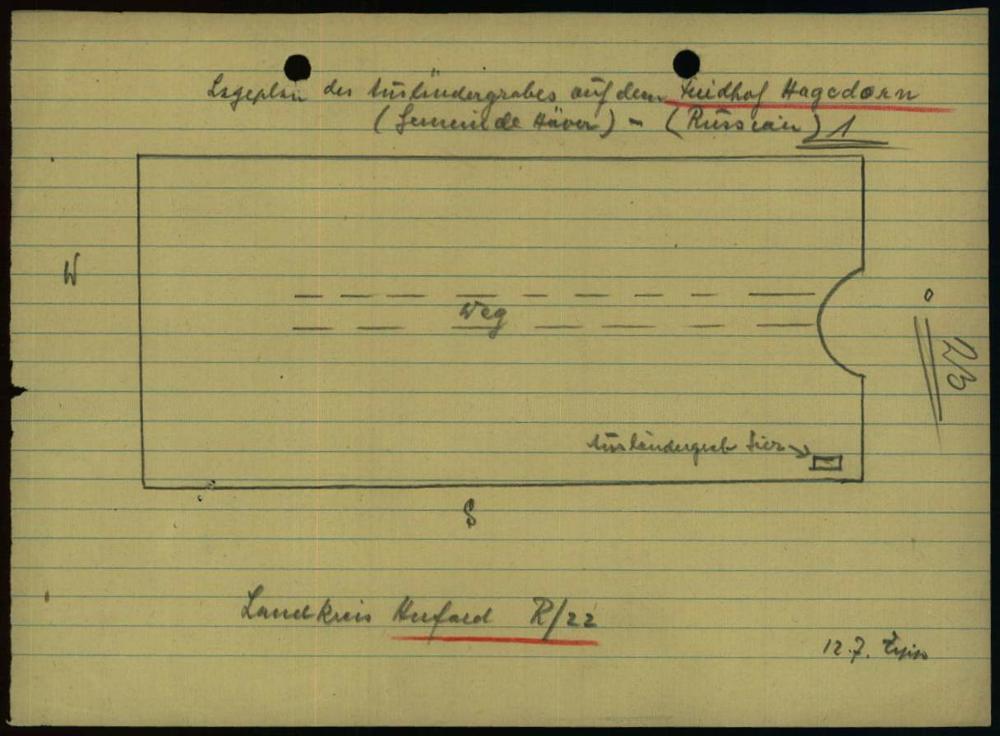 Lageplan des Ausländergrabes auf dem Friedhof Hagedorn
(Gemeinde Häver) - (Russian) 1
W
Weg
o
23
Ausländergrab hier
S
Landkreis Herford R/22
12.7.